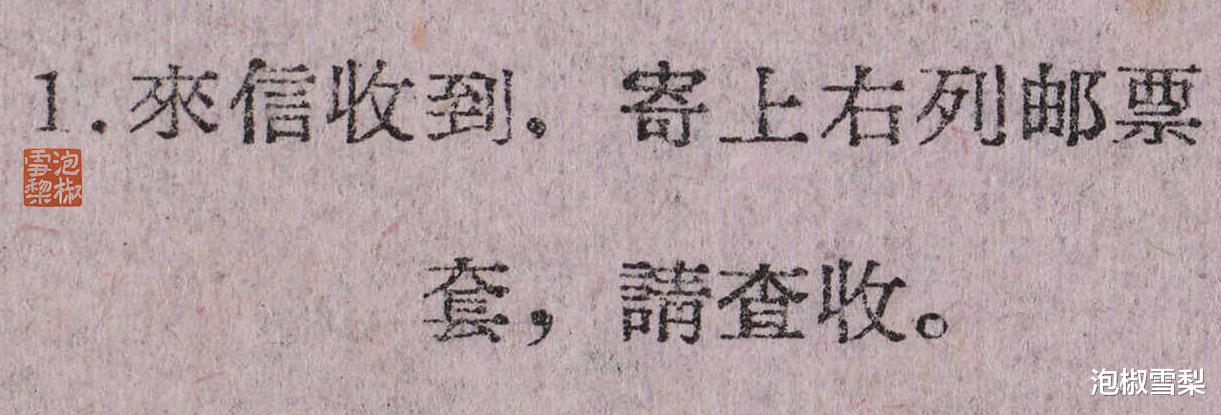 1.來信收到. 寄上右列邮票
泡椒
雪梨
套，請查收。
泡椒雪梨